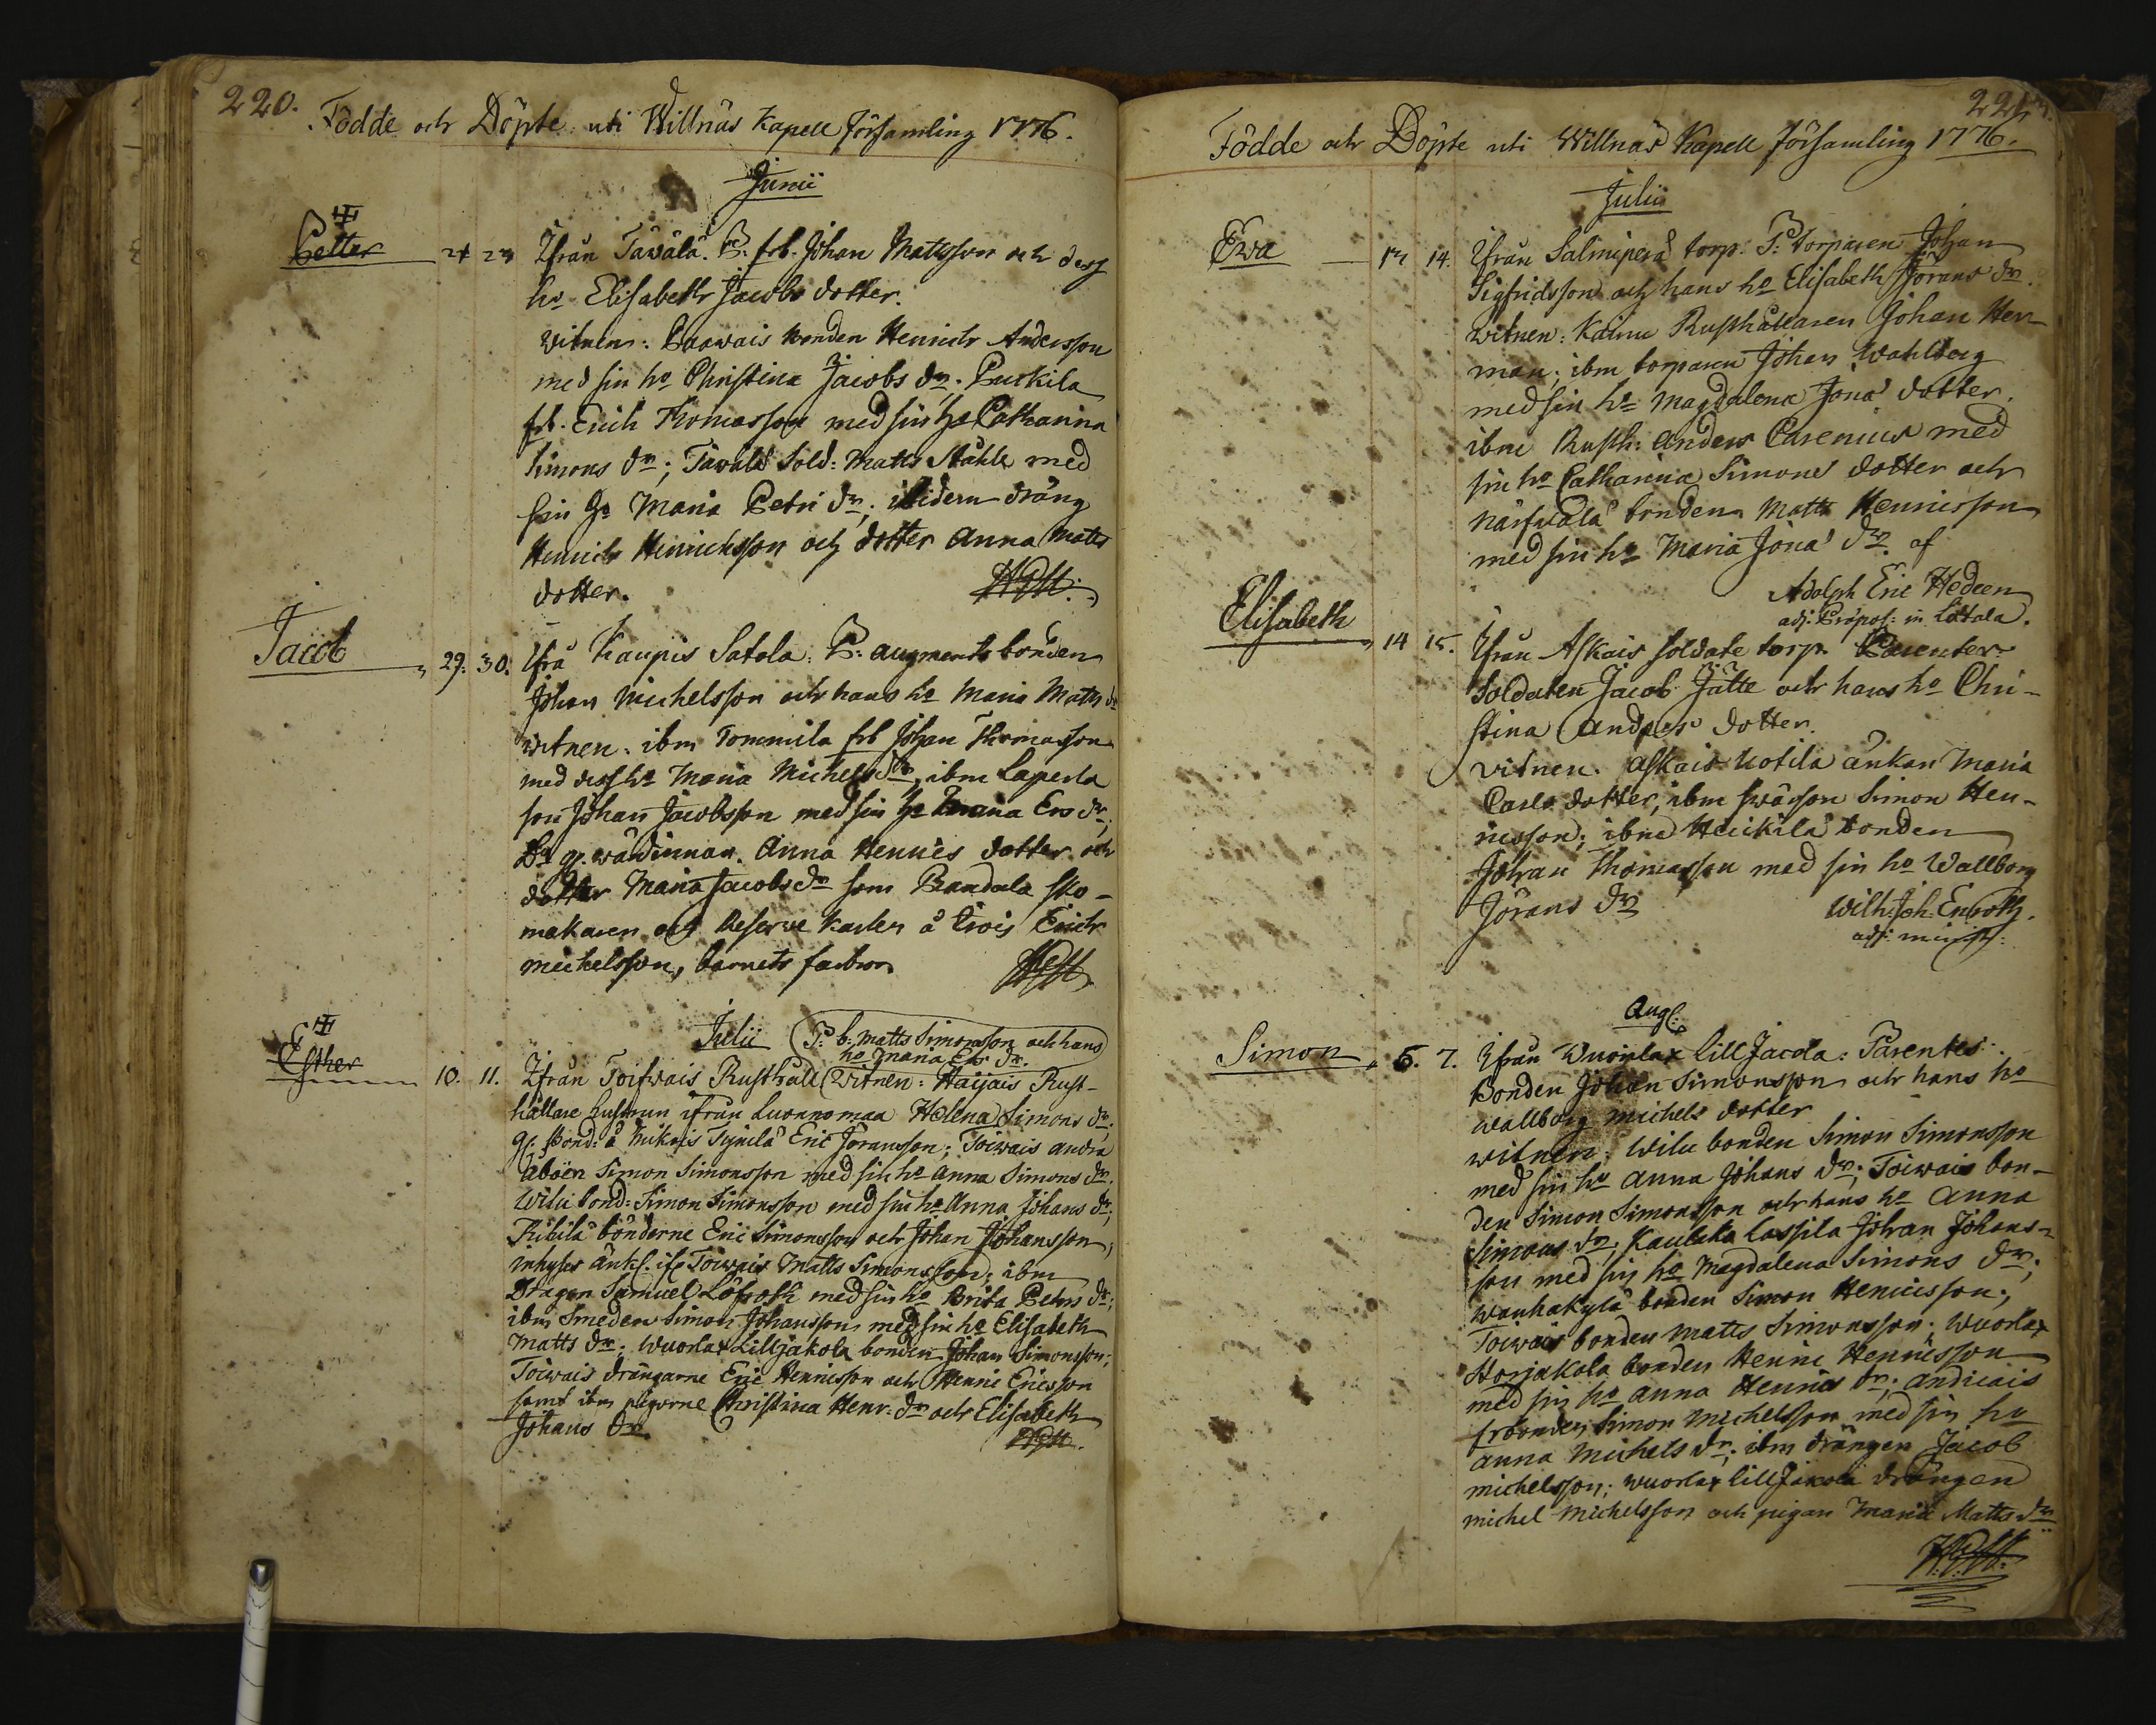 220.
Födde och Döpte uti Willnäs Kapell församling 1776.
Junii
Petter 24 23 Ifrån Tawala. P: frb. Johan Mattsson och dess
ho Elisabeth Jacobs dotter.
witnen: Paawais bonden Henrich Andersson
med sin ho Christina Jacobs dr. Puckila
frb. Erich Thomasson med sin ho Catharina
Simons dr; Tawala Sold: Matts Ståhle med
sin ho Maria Petri dr; ibidem dräng
Henrich Henrichsson och dotter Anna Matts
dotter.
Jacob 29. 30. Ifrå Kaupis Satola. P: augments bonden
Johan Michelsson och hans ho Maria Matts dr
witnen: ibm Tommila frb Johan Thomasson
med dess ho Maria Michels dr, ibm Laperla
son Johan Jacobsson med sin ho Maria Ers dr;
wärdinnan Anna Henrics dotter och
dotter Maria Jacobs dr som Pandala sko-
makaren och Reserve karlen å Erich
Michelsson, barnets farbror
Julii (P: b: Matts Simonsson och hans
ho Maria Er: dr.
Esther 10. 11. Ifrån Toiwais Rusthåll (Witnen: Haijais Rust-
hållare hustrun ifrån Luonnomaa Helena Simons dr;
bond: å Tynila Eric Jöransson; Toiwais andra
åboen Simon Simonsson med sin ho Anna Simons dr.
Wilu bond: Simon Simonsson med sin ho Anna Johans dr;
bönderne Eric Simonsson och Johan Johansson;
inhyses änkl. ifr Toiwais Matts Simonsson; ibm
Dragon Samuel Löfroth med sin ho Brita Petrs dr;
ibm Smeden Simon Johansson med sin ho Elisabeth
Matts dr; Wuorlax Lilljakola bonden Johan Simonsson;
Toiwais drängarne Eric Henricsson och Henric Ericsson
samt ibm pigorne Christina Henr: dr och Elisabeth
Johans dr.
221.
Födde och Döpte uti Willnäs Kapell församling 1776.
Julii
Ewa 13 14. Ifrån Salmiperä torp. P: torparen Johan
Sigfridsson och hans ho Elisabeth Jörans dr.
witnen: Kainu Rusthållaren Johan Her-
man; ibm torparen Johan Wahlberg
med sin ho Magdalena Jona dotter.
ibm Rusth: Anders Carenius med
sin ho Catharina Simons dotter och
bonden Matts Henricsson
med sin ho Maria Jona dr. af
Adolph Eric Hedeen
adj: Præpos: in Lättala.
Elisabeth 14 15. Ifrån Askais soldate torp. Parenter
Soldaten Jacob Jätte och hans ho Chri-
stina Anders dotter.
witnen. Askais Uotila änkan Maria
Carls dotter, ibm swärson Simon Hen-
ricsson; ibm Heickilä bonden
Johan Thomasson med sin ho Wallborg
Jörans dr
Wilh: Joh: Enroth.
adj: minist:
Aug:
Simon 6. 7. Ifrån Wuorlax LillJacola: Parentes:
Bonden Johan Simonsson och hans ho
Wallborg Michels dotter
witnen: Wilu bonden Simon Simonsson
med sin ho Anna Johans dr; Toiwais bon-
den Simon Simonsson och hans ho Anna
Simons dr; Lassila Johan Johans-
son med sin ho Magdalena Simons dr;
Wanhakylä bonden Simon Henricsson;
Toiwais bonden Matts Simonsson; Wuorlax
Storjakola bonden Henric Henricsson
med sin ho Anna Henrics dr; Andicais
frbonden Simon Michelsson med sin ho
Anna Michels dr; ibm drängen Jacob
Michelsson; Wuorlax LillJakola drängen
Michel Michelsson och pigan Maria Matts dr